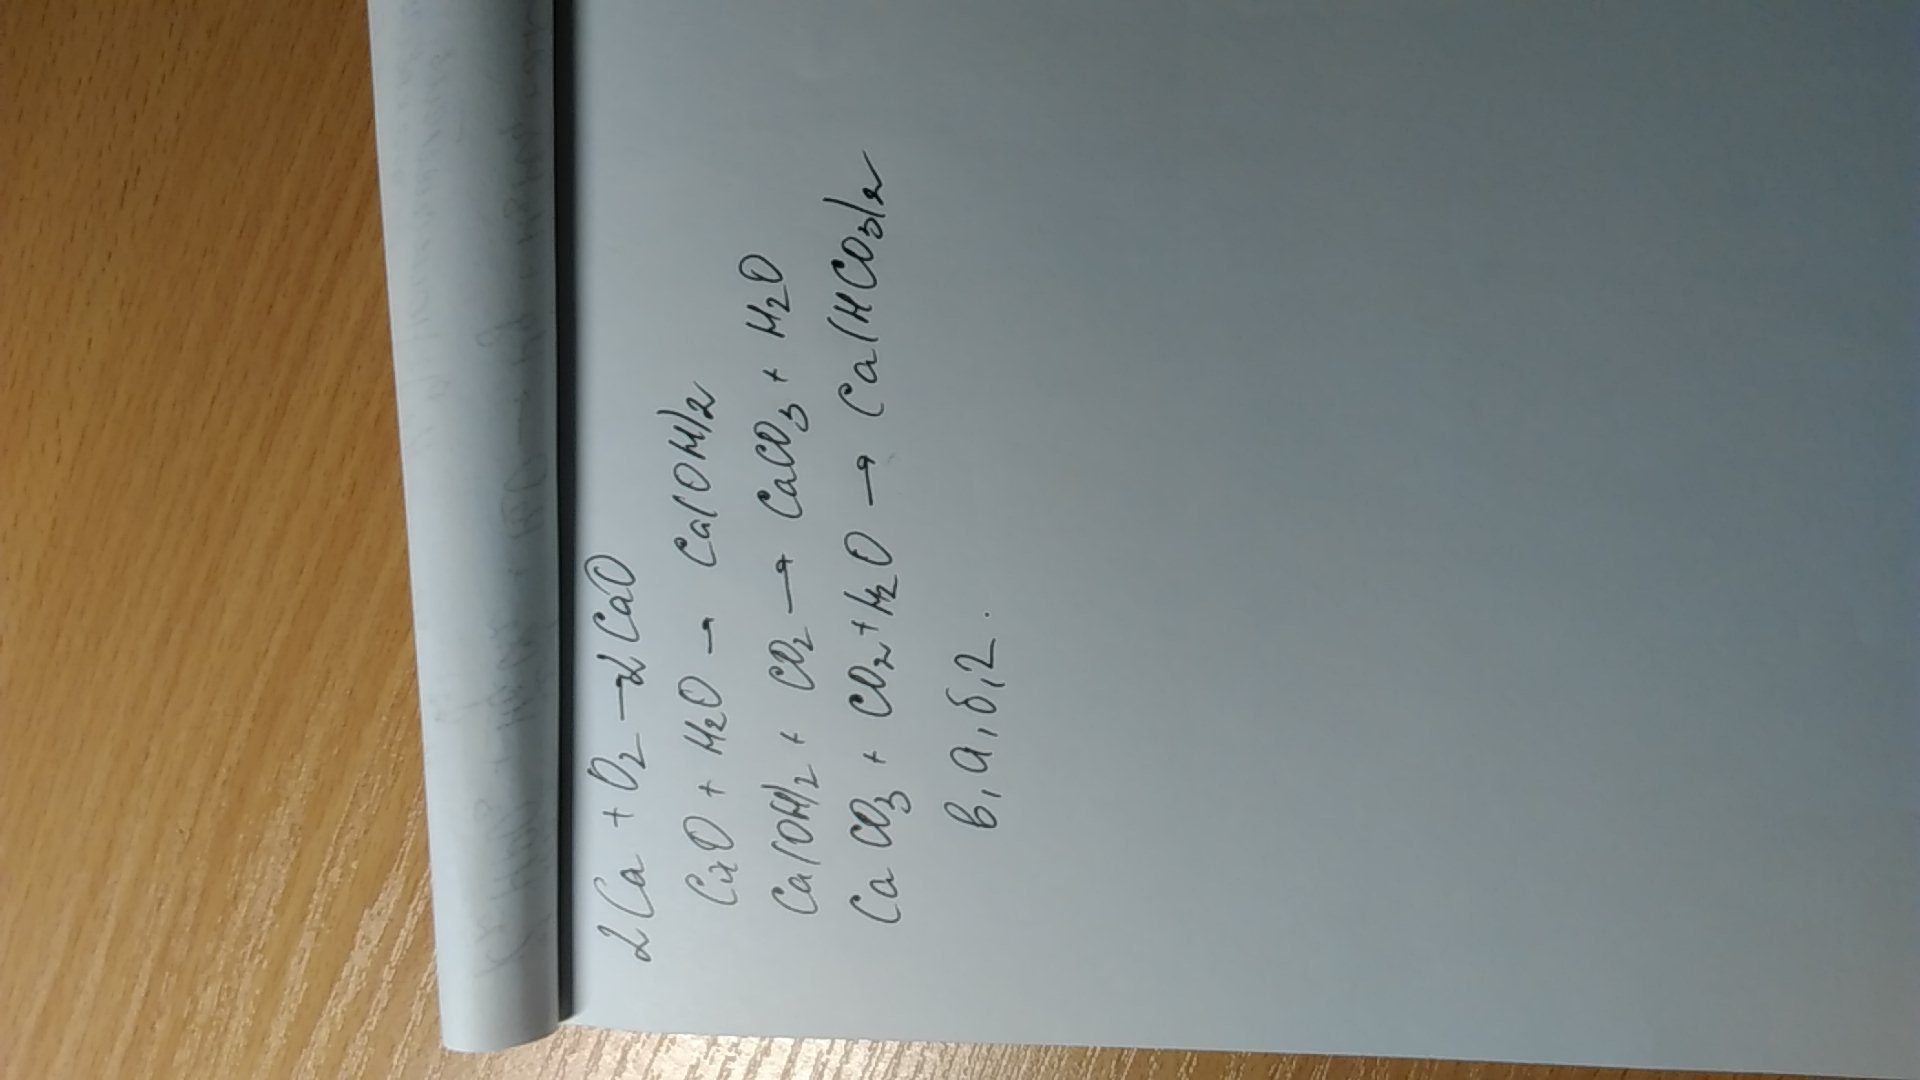 2Ca + O₂ → 2CaO
CaO + H₂O → Ca(OH)₂
Ca(OH)₂ + CO₂ → CaCO₃ + H₂O
CaCO₃ + CO₂ + H₂O → Ca(HCO₃)₂
в, а, б, г.